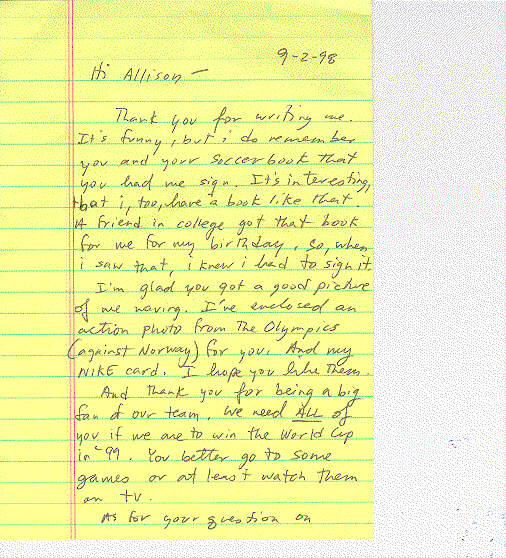 9-2-98
Hi Allison —
Thank you for writing me.
It's funny, but i do remember
you and your soccer book that
you had me sign. It's interesting,
that i, too, have a book like that.
A friend in college got that book
for me for my birthday. So, when
i saw that, i knew i had to sign it.
I'm glad you got a good picture
of me waving. I've enclosed an
action photo from The Olympics
(against Norway) for you. And my
NIKE card. I hope you like them.
And thank you for being a big
fan of our team, we need ALL of
you if we are to win the World Cup
in '99. You better go to some
games or at least watch them
on tv.
As for your question on